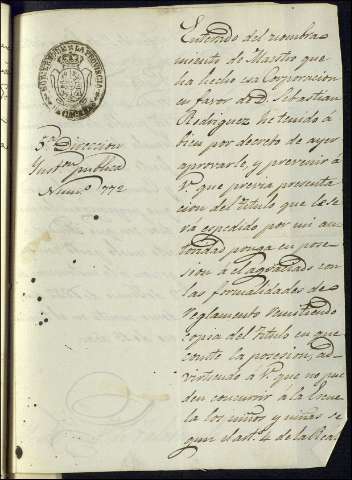 GOBIERNO DE LA PROVINCIA
5ª Direccion
Instⁿ publica
Num.º 772
Enterado del nombra
miento de Maestro que
ha hecho esa Corporacion
en favor de D. Sebastian
Rodriguez he tenido á
bien por decreto de ayer
aprovarle, y prevenir á
V. que previa presenta
cion del titulo que le se
rá espedido por mi au
toridad ponga en pose
sion á el agraciado con
las formalidades de
Reglamento remitiendo
copia del titulo en que
conste la posesion, ad-
virtiendo á V. que no pue
den concurrir á la Escue
la los niños y niñas se
gun el art. 4 de la Real